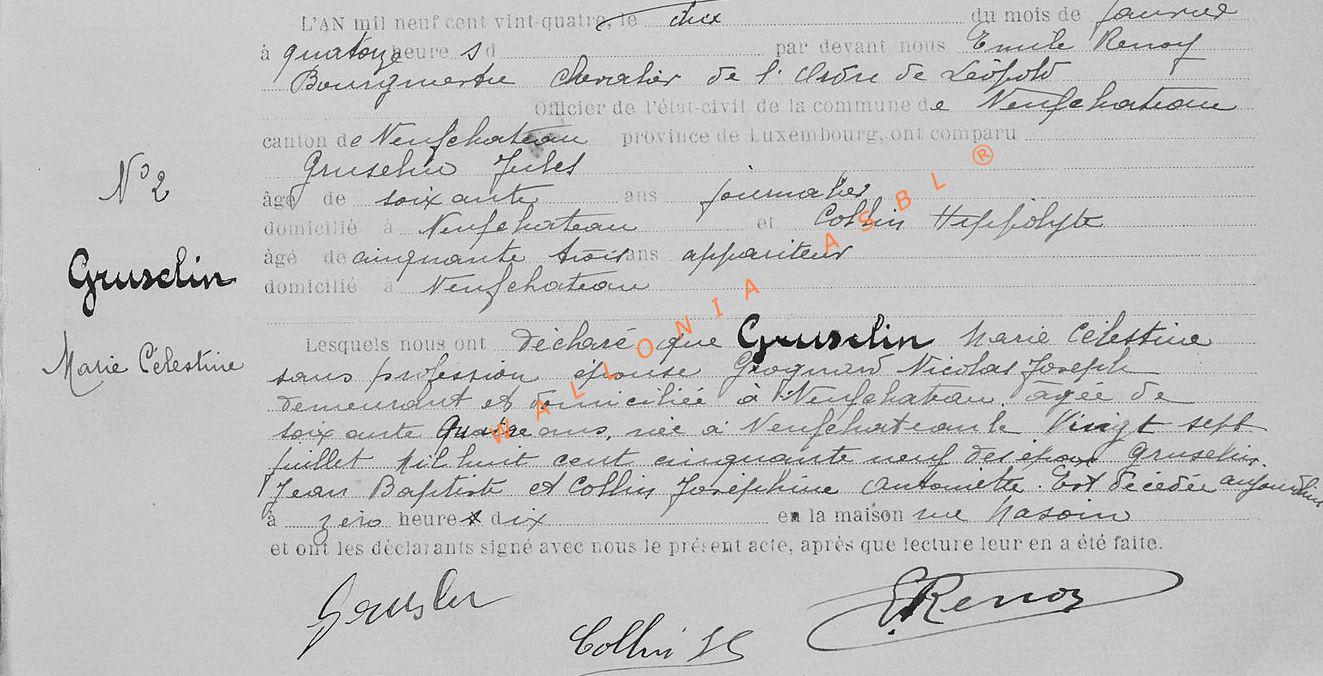 L'AN mil neuf cent vint-quatre, le dix du mois de Janvier
à quatorze heure s d par devant nous Emile Renoy
Bourgmestre Chevalier de l'Ordre de Léopold
Officier de l'état-civil de la commune de Neufchateau
canton de Neufchateau province de Luxembourg, ont comparu
Gruselin Jules
âgé de soixante ans journalier
domicilié à Neufchateau et Collin Hippolyte
âgé de cinquante trois ans appariteur
domicilié à Neufchateau
N° 2
Gruselin
Marie Célestine
Lesquels nous ont déclaré que Gruselin Marie Célestine
sans profession épouse Grognard Nicolas Joseph
demeurant et domiciliée à Neufchateau, âgée de
soixante quatre ans, née à Neufchateau le Vingt sept
juillet Mil huit cent cinquante neuf des époux Gruselin
Jean Baptiste et Collin Joséphine Antoinette. Est décédée aujourd'hui
à zéro heure dix en la maison rue
et ont les déclarants signé avec nous le présent acte, après que lecture leur en a été faite.
Gruslin
Collin H
E. Renoy
WALLONIA ASBL ®